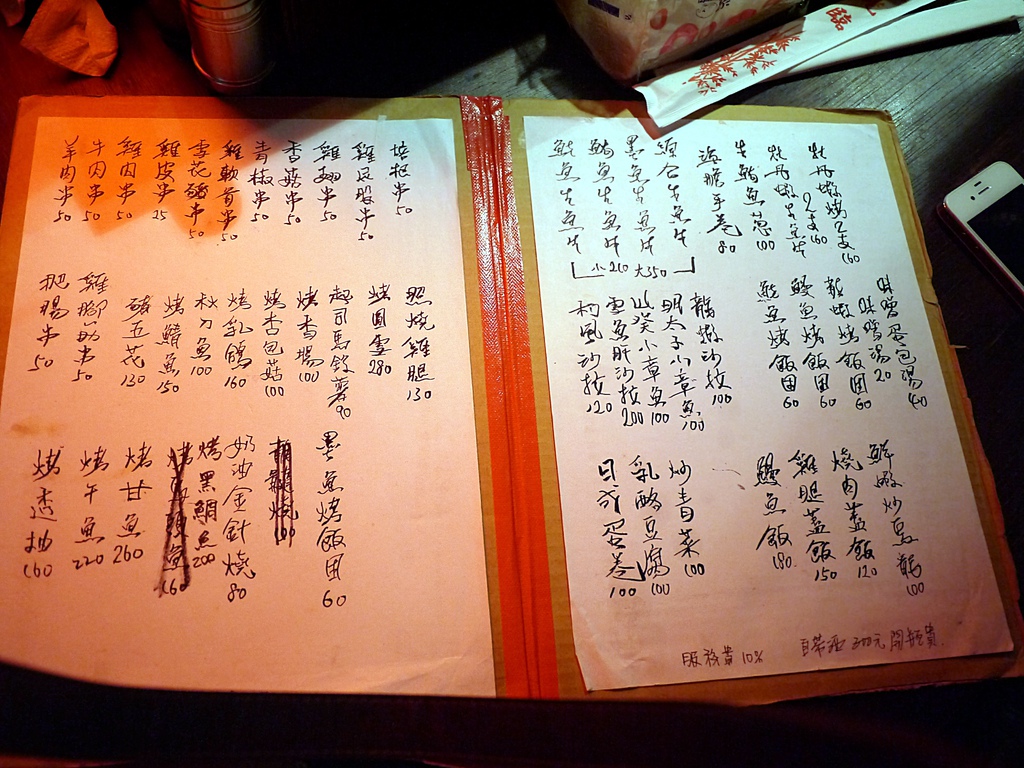 培根串50
雞屁股串50
雞翅串50
香菇串50
青椒串50
雞軟骨串50
雪花豬串50
雞皮串25
雞肉串50
牛肉串50
羊肉串50
照燒雞腿130
烤圓鱈280
起司馬鈴薯90
烤香腸100
烤杏包菇100
烤乳鴿160
秋刀魚100
烤鯖魚150
豬五花130
雞腳筋串50
肥腸串50
墨魚烤飯团60
奶油金針燒80
烤黑鯛魚200
烤甘魚260
烤午魚220
烤透抽160
牡丹蝦烤2支160
牡丹蝦生魚片2支160
生鮪魚蔥100
海膽手卷80
綜合生魚片
墨魚生魚片
鮪魚生魚片
鮭魚生魚片
小210 大350
味噌蛋包湯40
味噌湯20
龍蝦烤飯团60
鰻魚烤飯团60
鮭魚烤飯团60
龍蝦沙拉100
明太子小章魚100
山葵小章魚100
雪魚肝沙拉200
柯風沙拉120
鮮蝦炒豆輪100
燒肉蓋飯120
雞腿蓋飯150
鰻魚飯180
炒青菜100
乳酪豆腐100
日式蛋卷100
服務費10%
自帶酒300元開瓶費